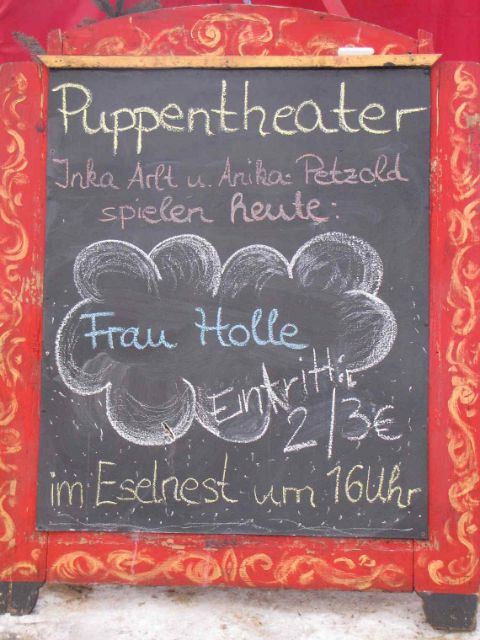 Puppentheater
Inka Arlt u. Anika Petzold
spielen heute:
Frau Holle
Eintritt:
2/3€
im Eselnest um 16Uhr